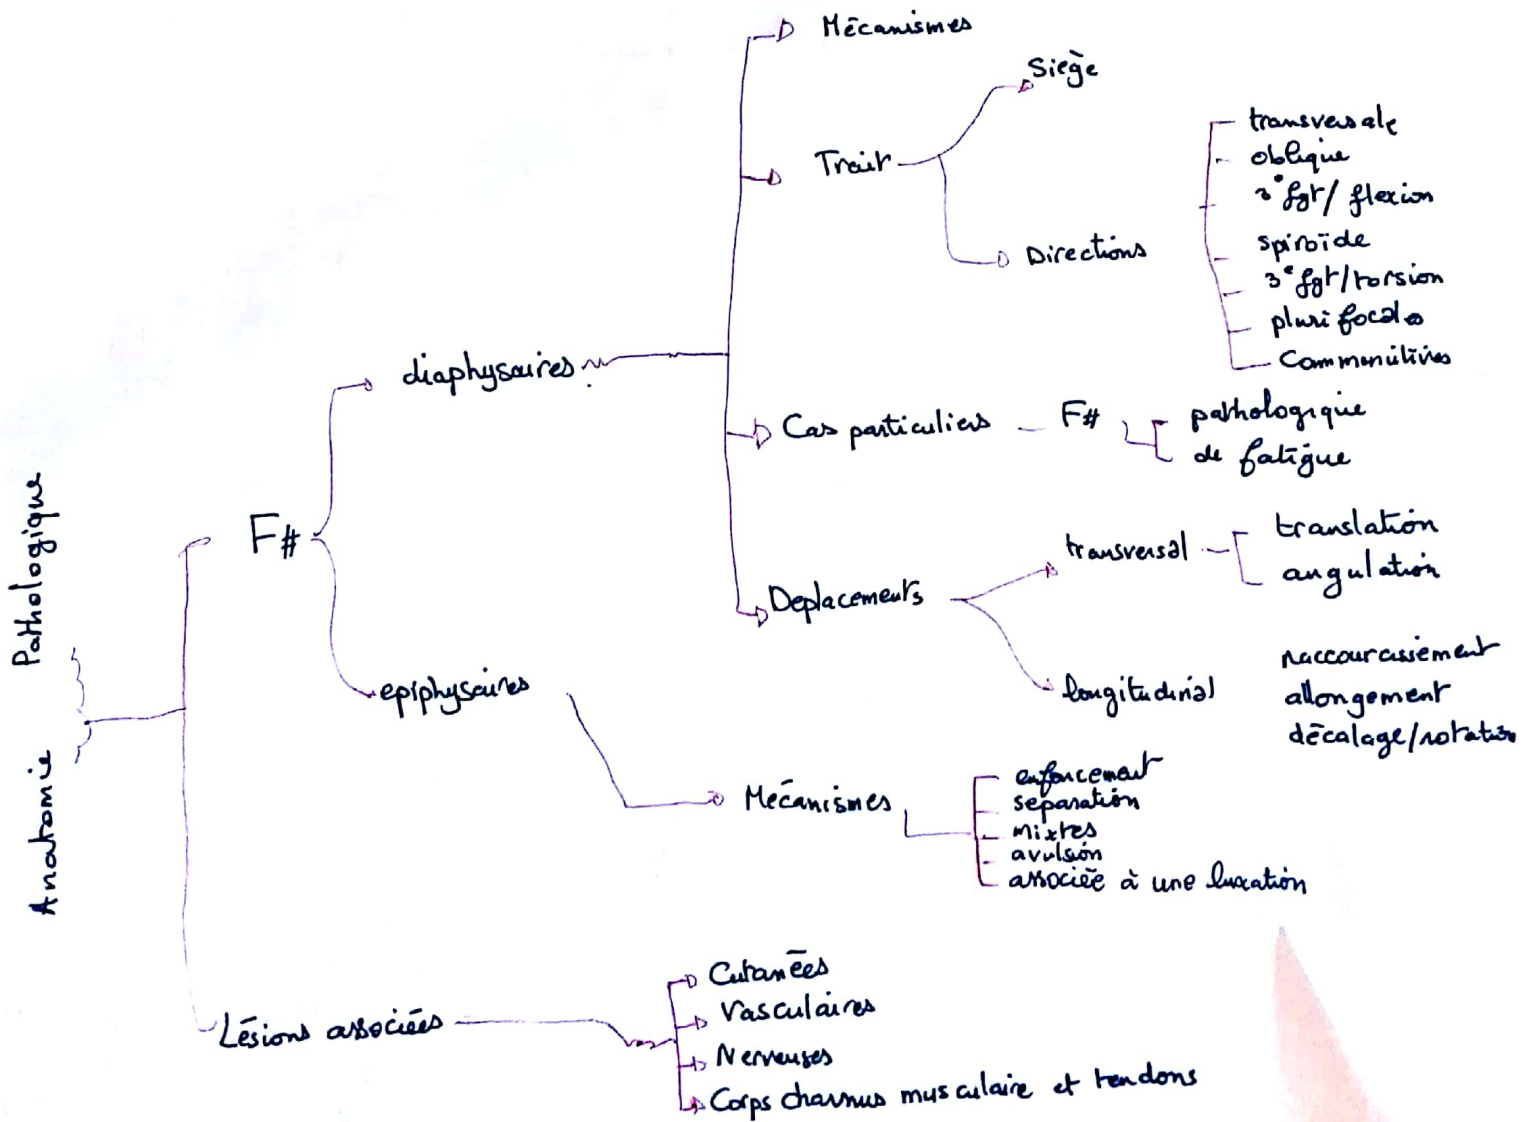 Anatomie Pathologique
F#
diaphysaires
Mécanismes
Trait
Siège
Directions
transversale
oblique
3e fgt/ flexion
spiroïde
3e fgt/torsion
plurifocales
Commenitives
Cas particuliers
F#
pathologique
de fatigue
Deplacements
transversal
translation
angulation
longitudinal
raccourcissement
allongement
décalage/rotation
epiphysaires
Mécanismes
enfoncement
separation
mixtes
avulsion
associée à une luxation
Lésions associées
Cutanées
Vasculaires
Nerveuses
Corps charnus musculaire et tendons